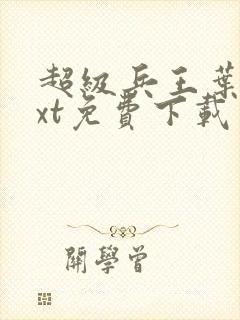 超級兵王葉
xt免費下載
開學曾